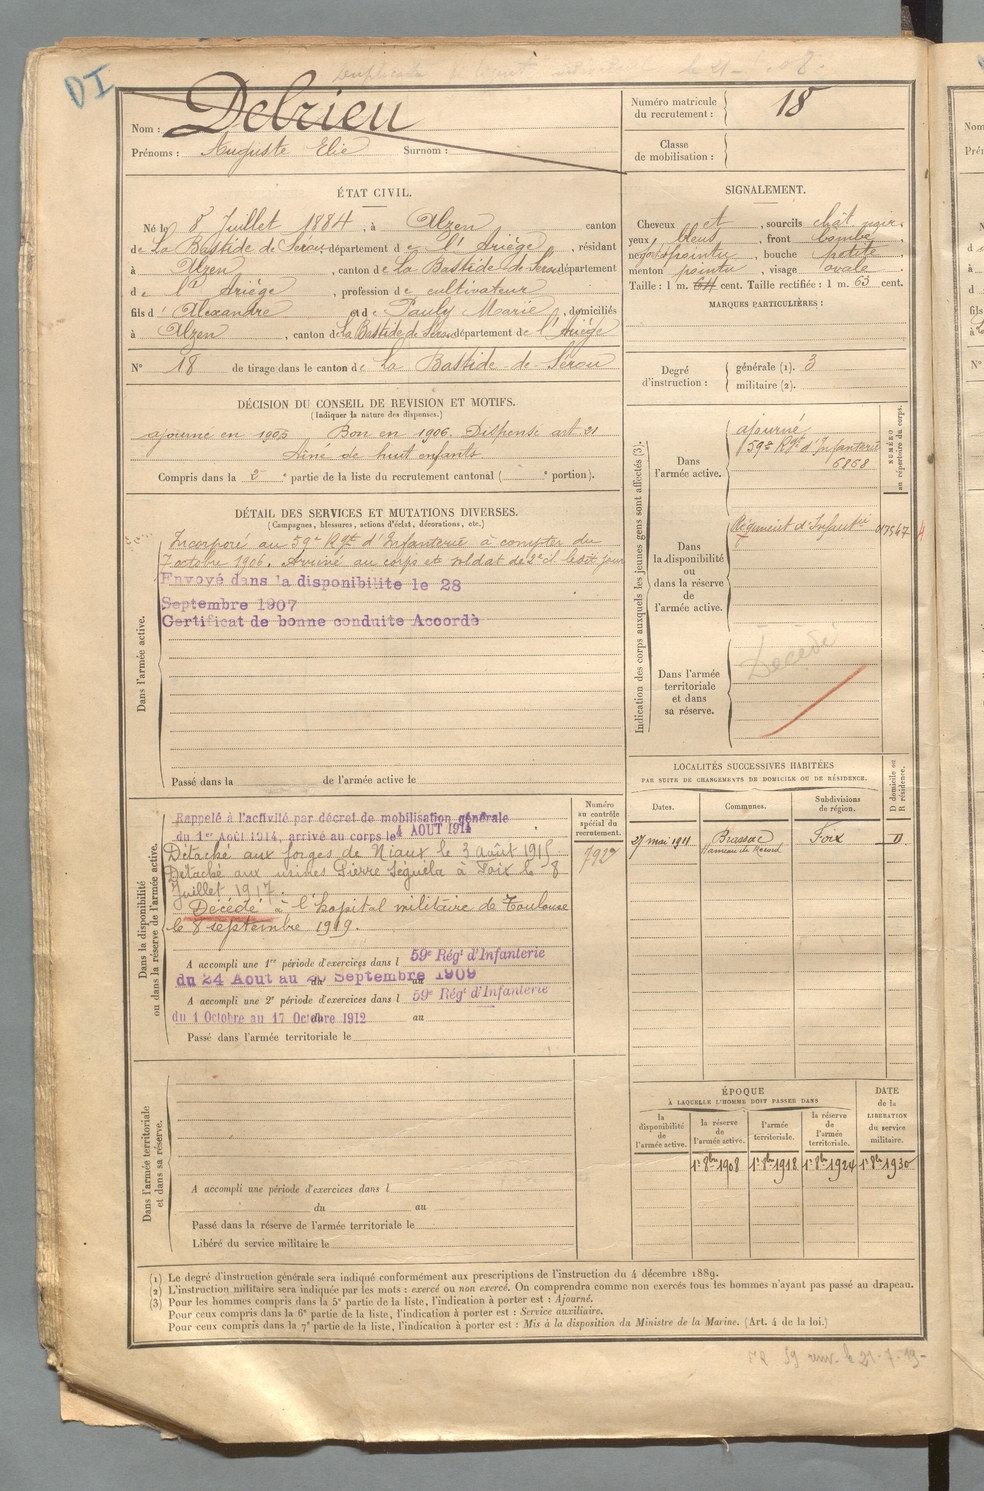 DI
Nom : Debrieu
Prénoms : Auguste Elie Surnom :
Numéro matricule du recrutement : 18
Classe de mobilisation :
ÉTAT CIVIL.
Né le 8 Juillet 1884, à Alzen canton
de La Bastide de Sérou département de l'Ariège, résidant
à Alzen, canton de La Bastide de Sérou département
de l'Ariège, profession de cultivateur
fils d'Alexandre et de Pauly Marie, domiciliés
à Alzen, canton de La Bastide de Sérou département de l'Ariège
N° 18 de tirage dans le canton de La Bastide-de-Sérou
SIGNALEMENT.
Cheveux et, sourcils chât noir,
yeux bleus, front bombé,
nez pointu, bouche petite,
menton pointu, visage ovale.
Taille : 1 m. 61 cent. Taille rectifiée : 1 m. 63 cent.
MARQUES PARTICULIÈRES :
Degré d'instruction : générale (1). 3
militaire (2).
DÉCISION DU CONSEIL DE REVISION ET MOTIFS.
(Indiquer la nature des dispenses.)
ajourné en 1905 Bon en 1906. Dispensé art. 21
Aîné de huit enfants
Compris dans la 2e partie de la liste du recrutement cantonal ( e portion).
DÉTAIL DES SERVICES ET MUTATIONS DIVERSES.
(Campagnes, blessures, actions d'éclat, décorations, etc.)
Dans l'armée active.
Incorporé au 59e Rgt d'Infanterie à compter du
7 octobre 1906. Arrivé au corps et soldat de 2e cl. le dit jour
Envoyé dans la disponibilite le 28
Septembre 1907
Certificat de bonne conduite Accordé
Passé dans la de l'armée active le
Indication des corps auxquels les jeunes gens sont affectés (3).
NUMÉRO au répertoire du corps.
Dans l'armée active.
ajourné
59e Rgt d'Infanterie
6868
Dans la disponibilité ou dans la réserve de l'armée active.
Régiment d'Infanterie 017547
Dans l'armée territoriale et dans sa réserve.
Décédé
LOCALITÉS SUCCESSIVES HABITÉES
PAR SUITE DE CHANGEMENTS DE DOMICILE OU DE RÉSIDENCE.
Dates. Communes. Subdivisions de région. D domicile ou R résidence.
27 mai 1911 Brassac Foix D
Hameau de
Dans la disponibilité ou dans la réserve de l'armée active.
Numéro au contrôle spécial du recrutement.
792
Rappelé à l'activité par décret de mobilisation générale
du 1er Août 1914, arrivé au corps le 4 AOUT 1914
Détaché aux forges de Niaux le 3 août 1915
Détaché aux usines Pierre Séguéla à Foix le 8
Juillet 1917.
Décédé à l'hopital militaire de Toulouse
le 8 septembre 1919.
A accompli une 1re période d'exercices dans l 59e Régt d'Infanterie
du 24 Aout au Septembre 1909
A accompli une 2e période d'exercices dans l 59e Régt d'Infanterie
du 1 Octobre au 17 Octobre 1912 au
Passé dans l'armée territoriale le
Dans l'armée territoriale et dans sa réserve.
A accompli une période d'exercices dans l
du au
Passé dans la réserve de l'armée territoriale le
Libéré du service militaire le
ÉPOQUE
À LAQUELLE L'HOMME DOIT PASSER DANS
la disponibilité de l'armée active.
la réserve de l'armée active.
l'armée territoriale.
la réserve de l'armée territoriale.
DATE de la LIBERATION du service militaire.
1er 8bre 1908 1er 8bre 1918 1er 8bre 1924 1er 8bre 1930
(1) Le degré d'instruction générale sera indiqué conformément aux prescriptions de l'instruction du 4 décembre 1889.
(2) L'instruction militaire sera indiquée par les mots : exercé ou non exercé. On comprendra comme non exercés tous les hommes n'ayant pas passé au drapeau.
(3) Pour les hommes compris dans la 5e partie de la liste, l'indication à porter est : Ajourné.
Pour ceux compris dans la 6e partie de la liste, l'indication à porter est : Service auxiliaire.
Pour ceux compris dans la 7e partie de la liste, l'indication à porter est : Mis à la disposition du Ministre de la Marine. (Art. 4 de la loi.)